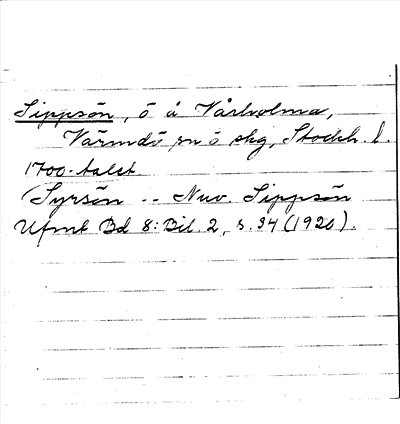 Sippsön, ö å Vårholma,
Värmdö sn o skg, Stockh. l.
1700-talet.
(Syrsön -- Nuv. Sippsön
Ufmt Bd 8: Bil. 2, s. 34 (1920).